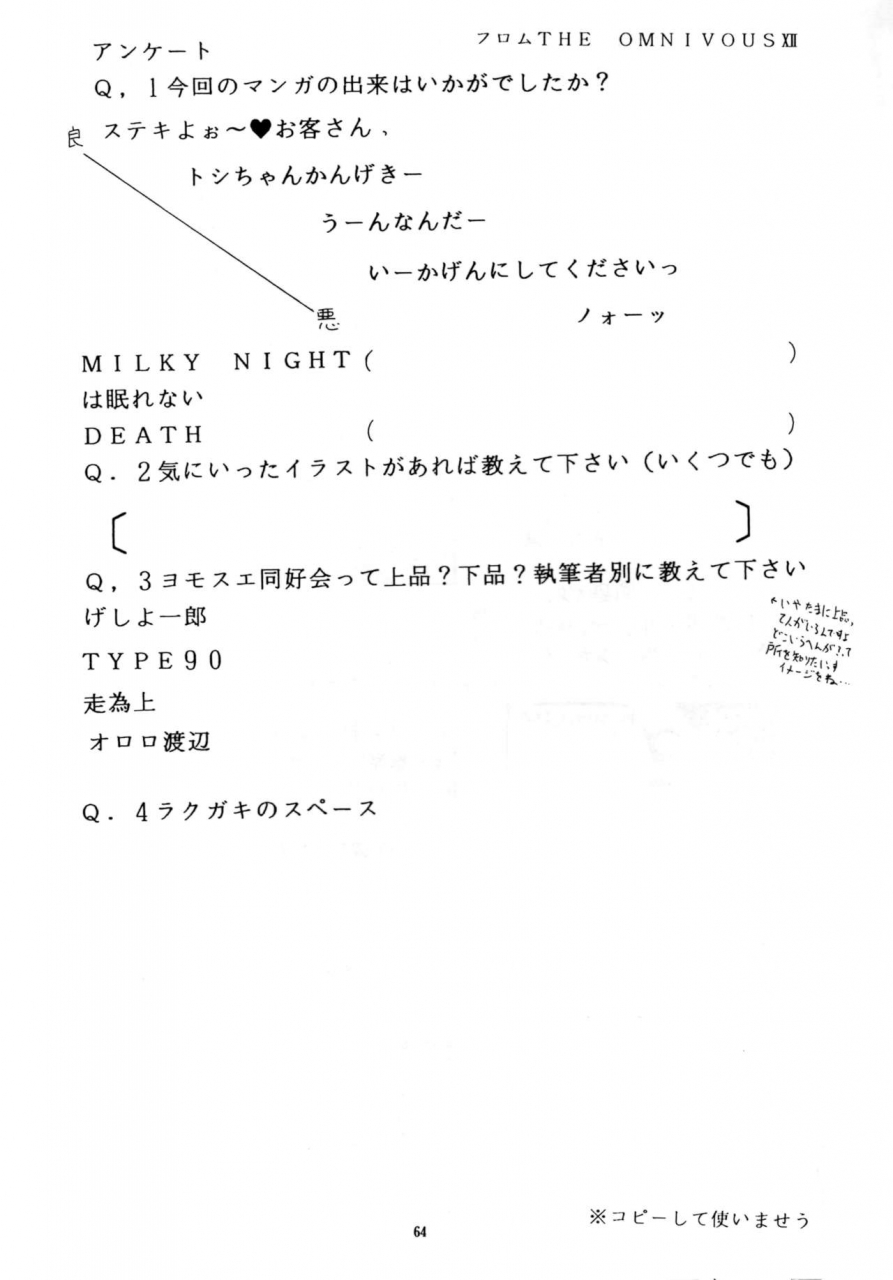 フロムTHE OMNIVOUSⅫ
アンケート
Q，1今回のマンガの出来はいかがでしたか？
良
ステキよぉ〜♥お客さん、
トシちゃんかんげきー
うーんなんだー
いーかげんにしてくださいっ
悪
ノォーッ
MILKY NIGHT（ ）
は眠れない
DEATH （ ）
Q．2気にいったイラストがあれば教えて下さい（いくつでも）
〔 〕
Q，3ヨモスエ同好会って上品？下品？執筆者別に教えて下さい
げしよ一郎
TYPE90
走為上
オロロ渡辺
いやたまに上品，
てんがいるんですよ
どこいらへんが？って
所を知りたいす
イメージをね…
Q．4ラクガキのスペース
※コピーして使いませう
64